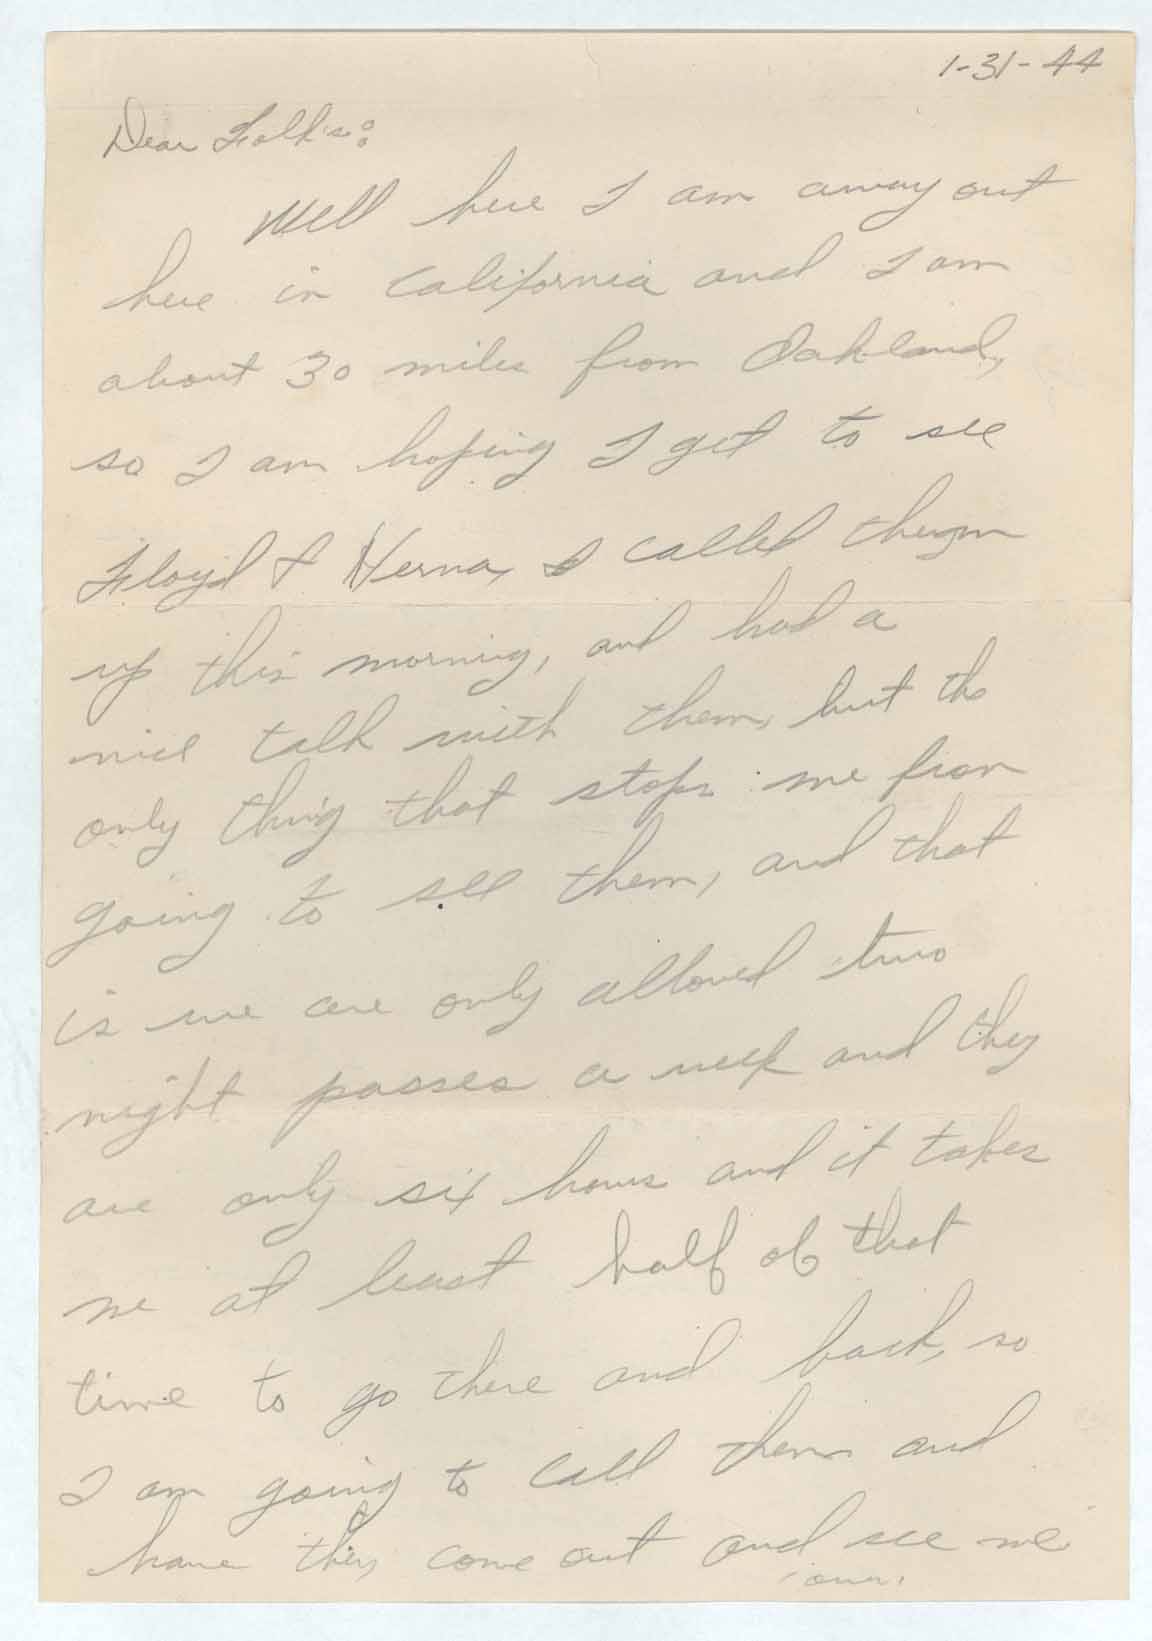 1-31-44
Dear Folk's:
Well here I am away out
here in California and I am
about 30 miles from Oakland,
so I am hoping I get to see
Floyd & Verna, I called them
up this morning, and had a
nice talk with them, but the
only thing that stops me from
going to see them, and that
is we are only alloved two
night passes a week and they
are only six hours and it takes
me at least half of that
time to go there and back, so
I am going to call them and
have they come out and see me
over.